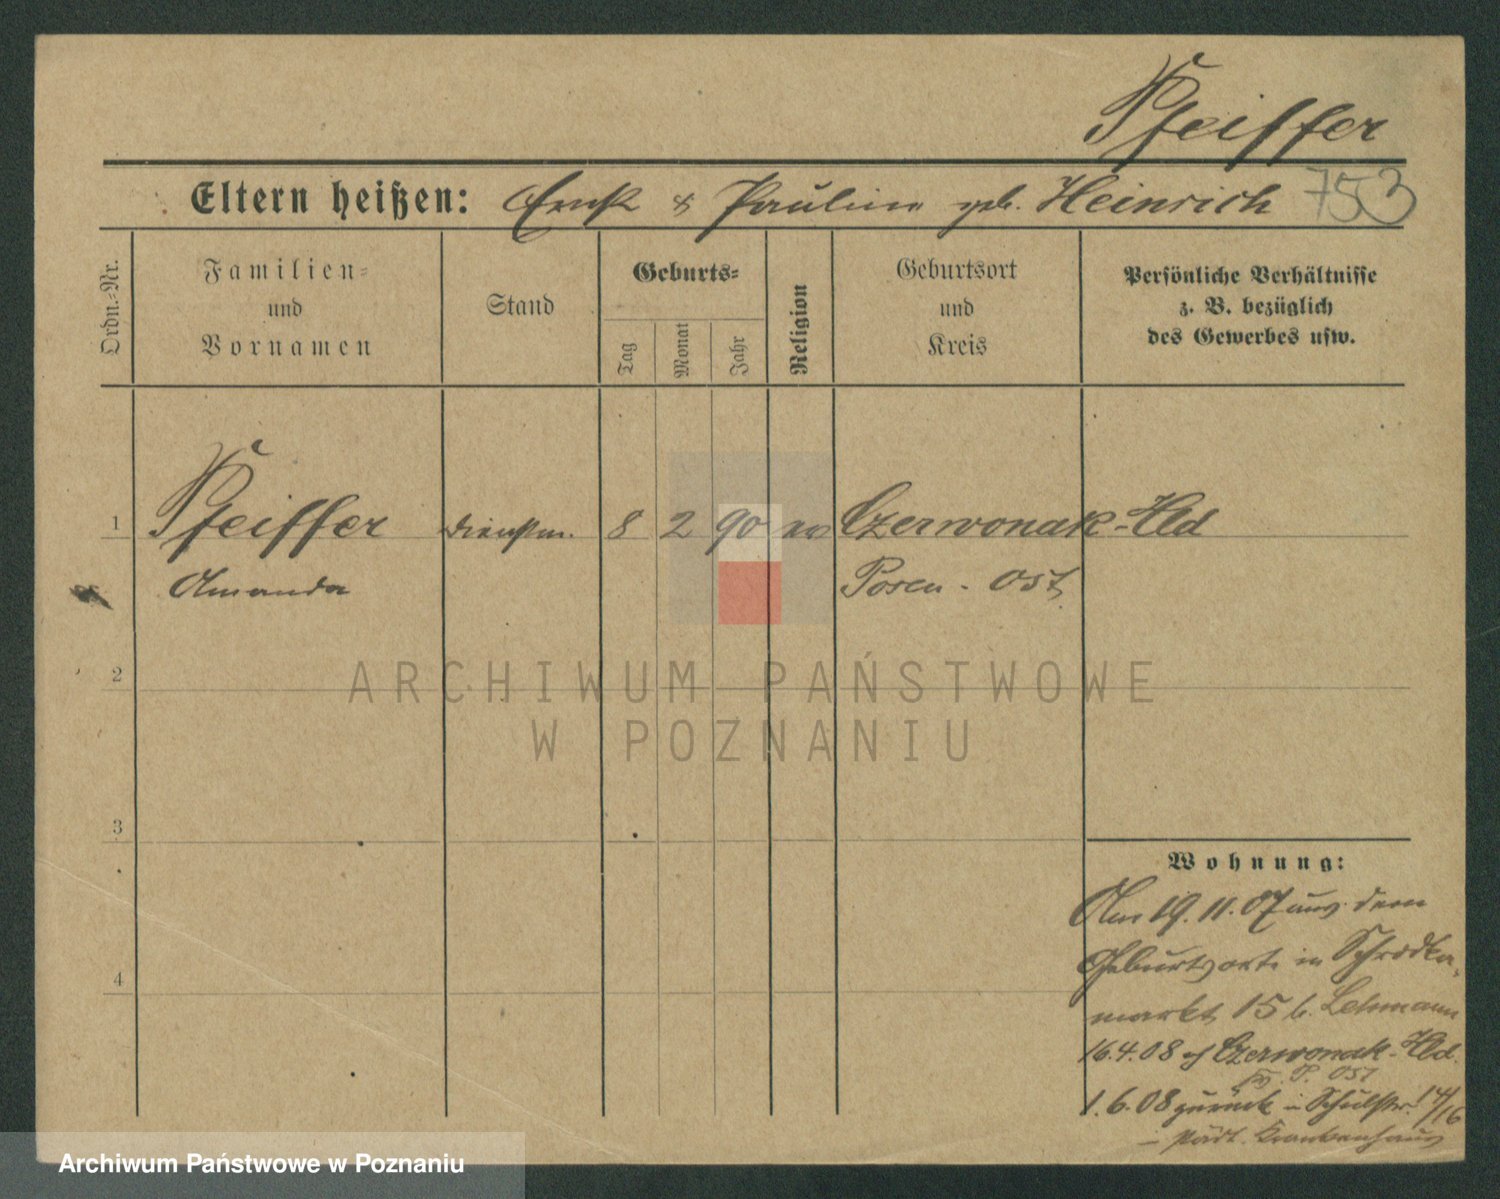 Pfeiffer
Eltern heißen: Ernst & Pauline geb. Heinrich 753
Ordn.-Nr.
Familien-
und
Vornamen
Stand
Geburts-
Tag
Monat
Jahr
Religion
Geburtsort
und
Kreis
Persönliche Verhältnisse
z. B. bezüglich
des Gewerbes usw.
1 Pfeiffer Dienstm. 8 2 90 ev Czerwonak-Hld
Amanda Posen-Ost
2
3
4
Wohnung:
Am 19.11.07 aus dem
Geburtsorte in Schrodka-
markt 15 b. Lehmann
16.4.08 n/ Czerwonak-Hld.
Kr. P. Ost
1.6.08 zurück in Schulstr. 14/16
städt. Krankenhaus
ARCHIWUM PAŃSTWOWE
W POZNANIU
Archiwum Państwowe w Poznaniu